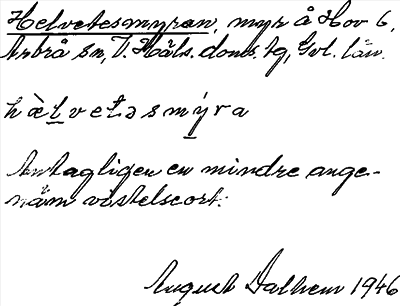 Helvetesmyran, myr å Hov 6,
Arbrå sn, V. Häls. doms. tg, Gvl. län.
hèl̲vetəsmy̲ra
Antagligen en mindre ange-
näm vistelseort.
August Dalhem 1946